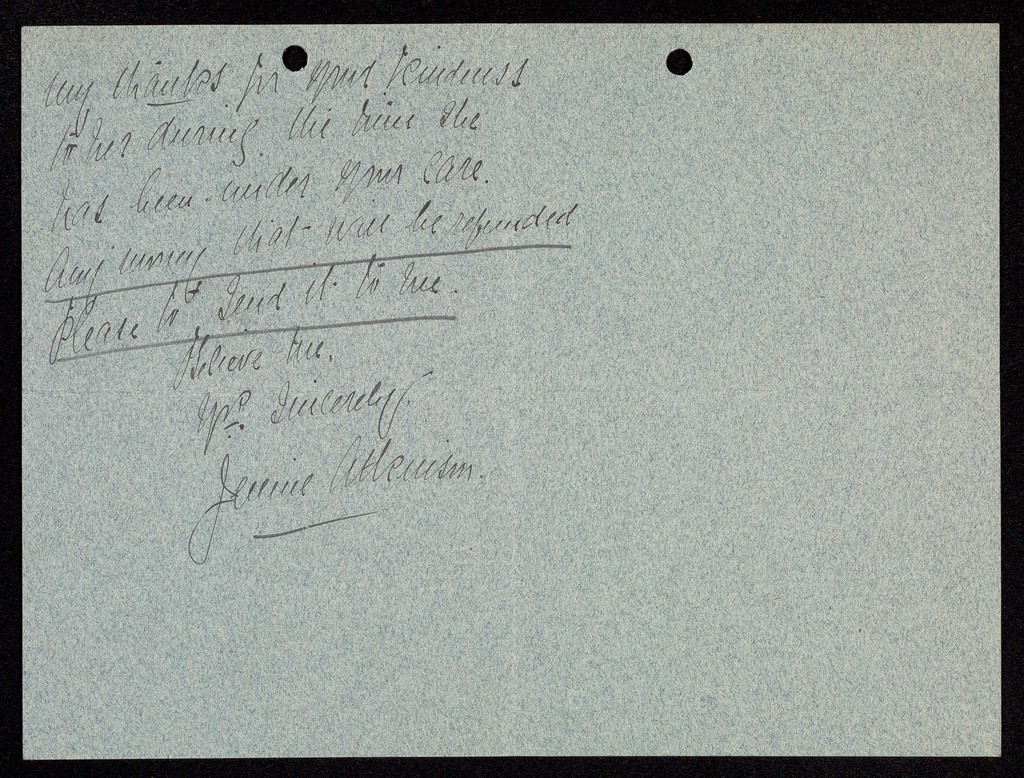 my thanks for your kindness
to her during the time she
has been under your care.
Any money that will be refunded
Please to send it to me.
Believe me.
Yrs. Sincerely,
Jennie Atkenison.